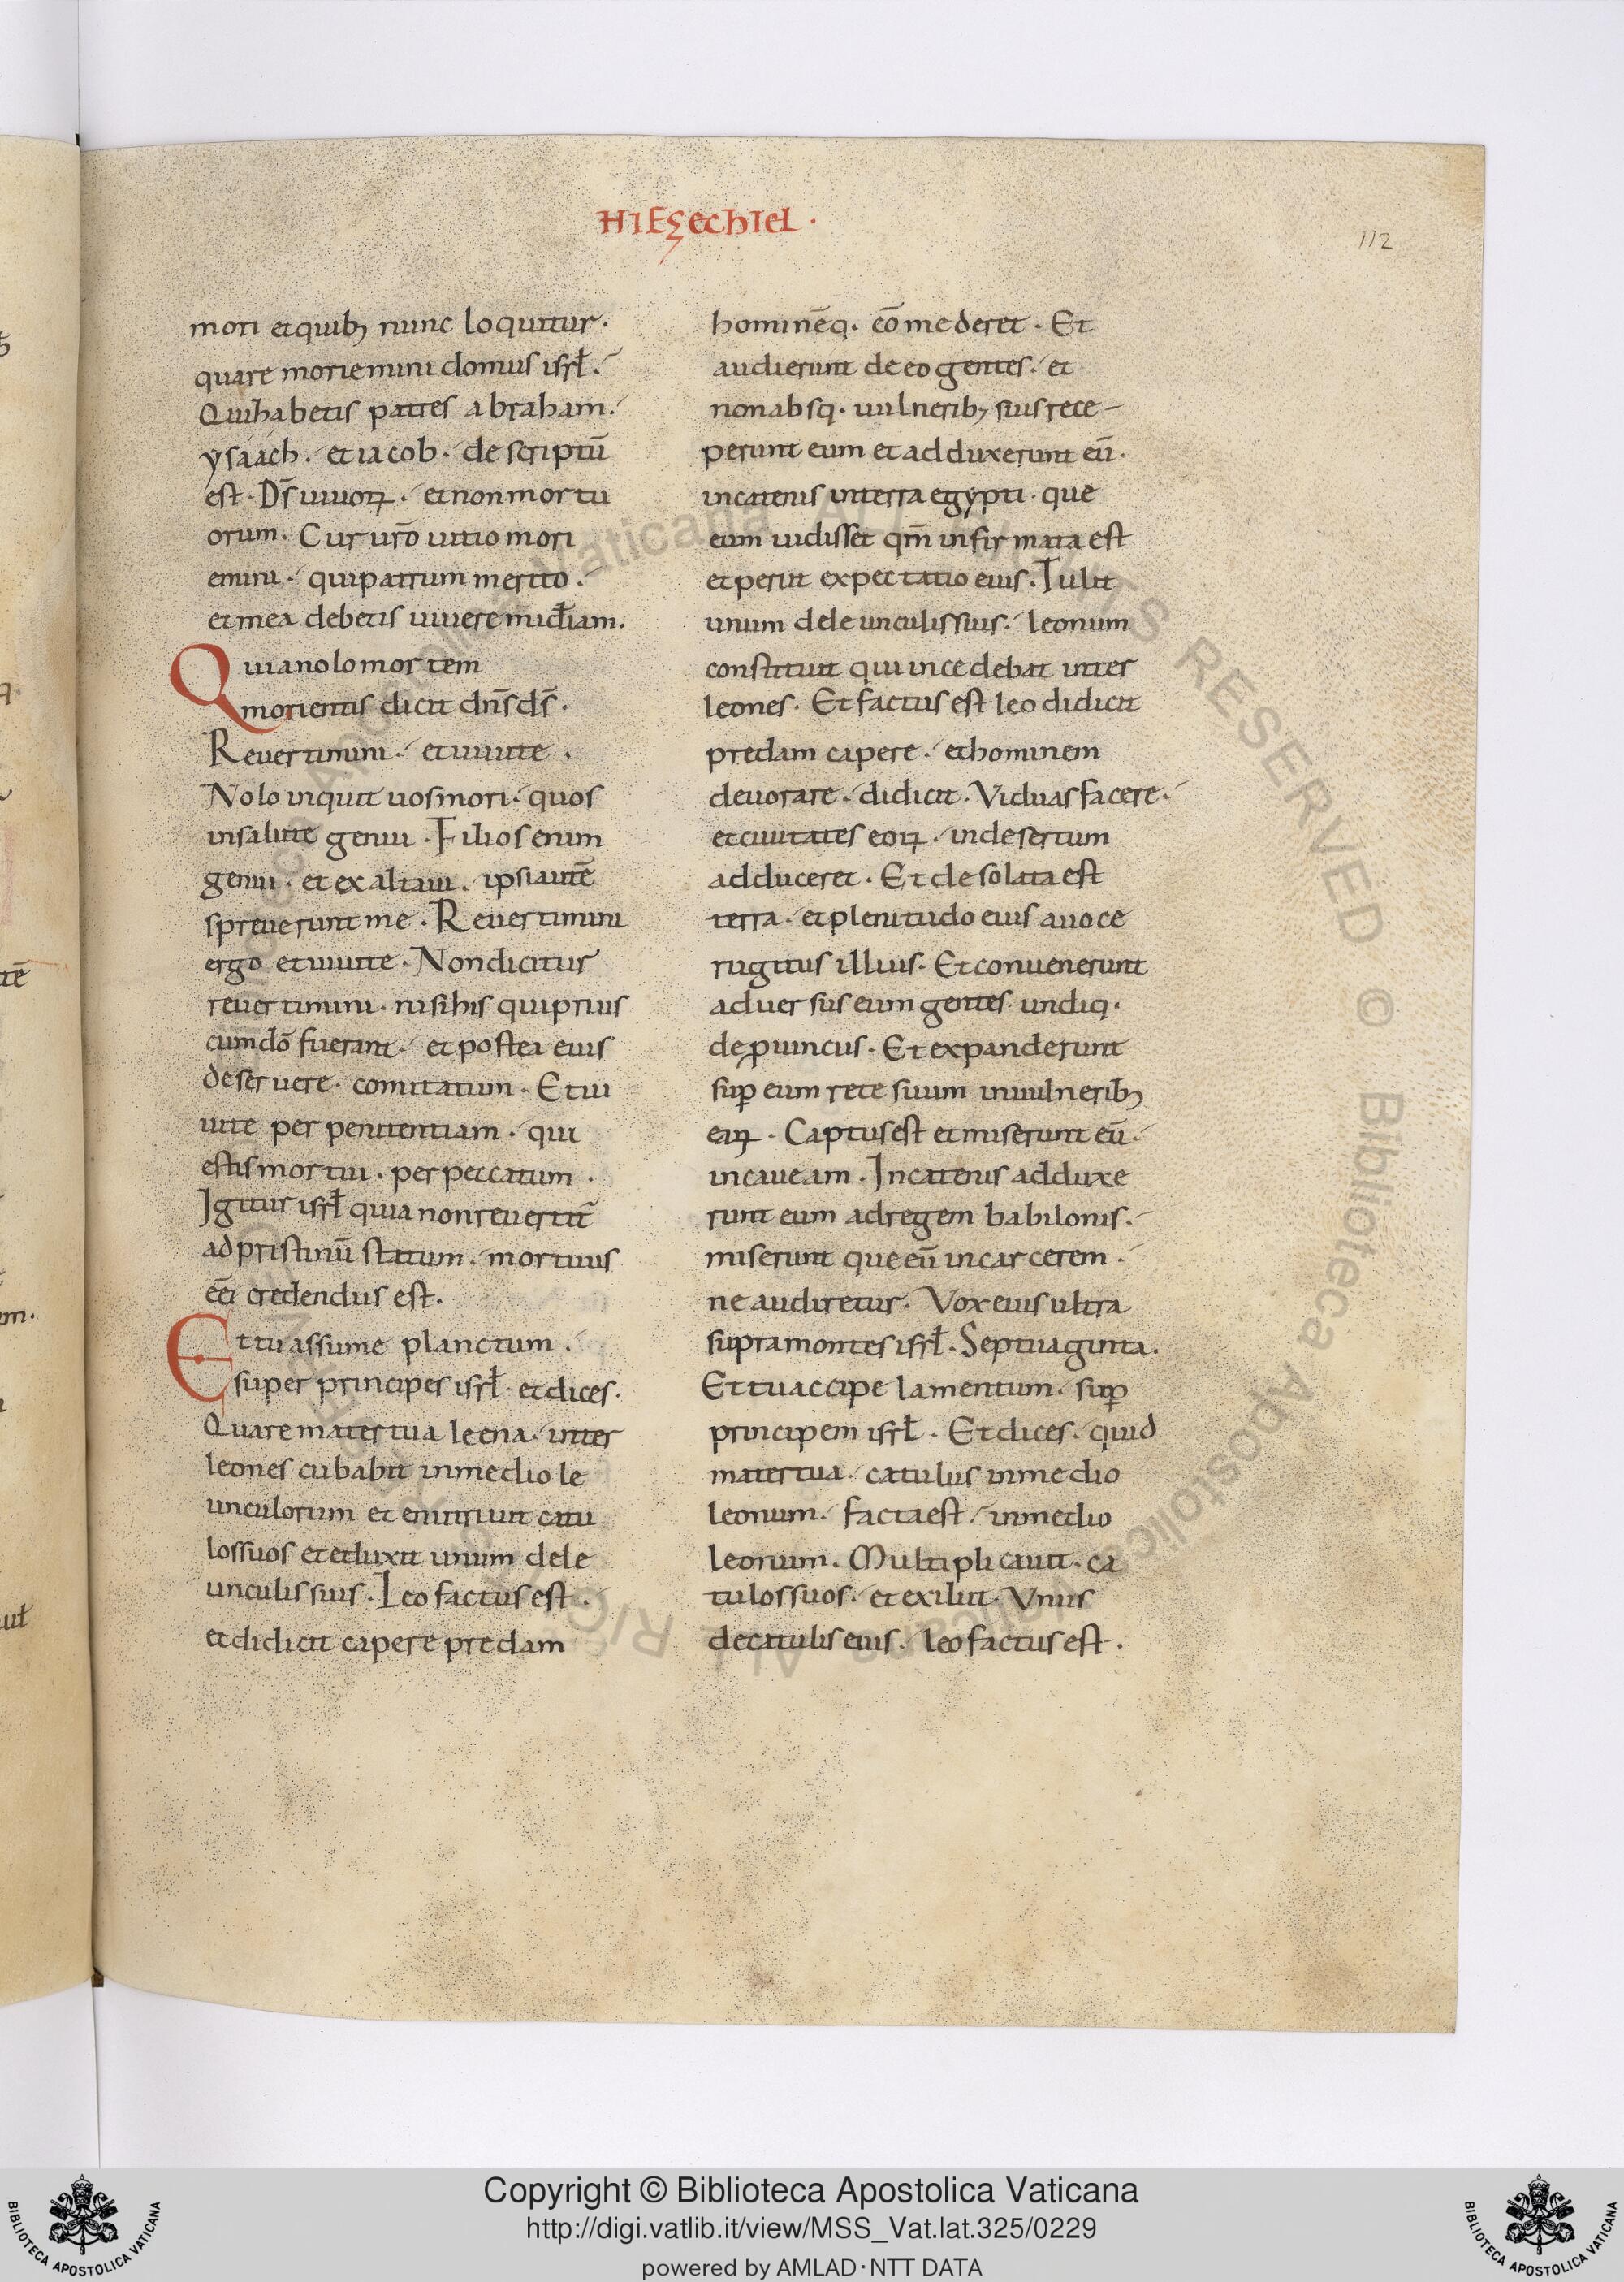 HIEZechIel ·
112
mori et quib; nunc loquitur ·
quare moriemini domus isrl̄ ·
Qui habetis patres abraham ·
ysáách · et iacob · de scriptū
est · Ds̄ uiuoꝝ · et non mortu
orum · Cur ur̄o uitio mori
emini · qui patrum merito ·
et mea debetis uiuere mīdiam ·
Quia nolo mortem
morientis dicit dn̄s ds̄ ·
Reuertimini · et uiuite ·
Nolo inquit uos mori · quos
in salute genui · Filios enim
genui · et exaltaui · ipsi autē
spreuerunt me · Reuertimini
ergo et uiuite · Non dicitur
reuertimini · nisi his qui prius
cum dō fuerant · et postea eius
deseruere · comitatum · Et ui
uite per penitentiam · qui
estis mortui · per peccatum ·
Igitur isrl̄ quia non reuertit̄
ad pristinū statum · mortuus
eē credendus est ·
Et tu assume planctum ·
super principes isrl̄ · et dices ·
Quare mater tua leena · inter
leones cubabit in medio le
unculorum et enutriuit catu
los suos et eduxit unum de le
unculis suis · Leo factus est ·
et didicit capere predam
hominēq · cōmederet · Et
audierunt de eo gentes · et
non absq · uulnerib; suis rece-
perunt eum et adduxerunt eū ·
in catenis in terra egypti · que
cum uidisset qm̄ infirmata est
et periit expectatio eius · Tulit
unum de leunculis suis · leonum
constituit qui incedebat inter
leones · Et factus est leo didicit
predam capere · et hominem
deuorare · didicit · Viduas facere ·
et ciuitates eoꝝ · in desertum
adduceret · Et desolata est
terra · et plenitudo eius a uoce
rugitus illius · Et conuenerunt
aduersus eum gentes undiq ·
de ꝓuinciis · Et expanderunt
sup̄ eum rete suum in uulnerib;
eaꝝ · Captus est et miserunt eū ·
in caueam · In catenis adduxe
runt eum ad regem babilonis ·
miserunt que eū in carcerem ·
ne audiretur · Vox eius ultra
supra montes isrl̄ · Septuaginta ·
Et tu accipe lamentum · sup̄
principem isrl̄ · Et dices · quid
mater tua · catulus in medio
leonum · facta est · in medio
leonum · Multiplicauit · ca
tulos suos · et exiliit · Vnus
de catulis eius · leo factus est ·
Copyright © Biblioteca Apostolica Vaticana
http://digi.vatlib.it/view/MSS_Vat.lat.325/0229
powered by AMLAD·NTT DATA